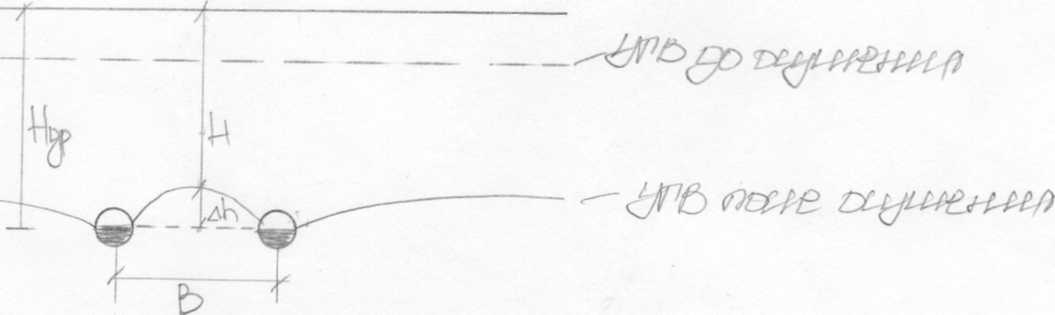 УГВ до осушения
Hдр
H
УГВ после осушения
Δh
B